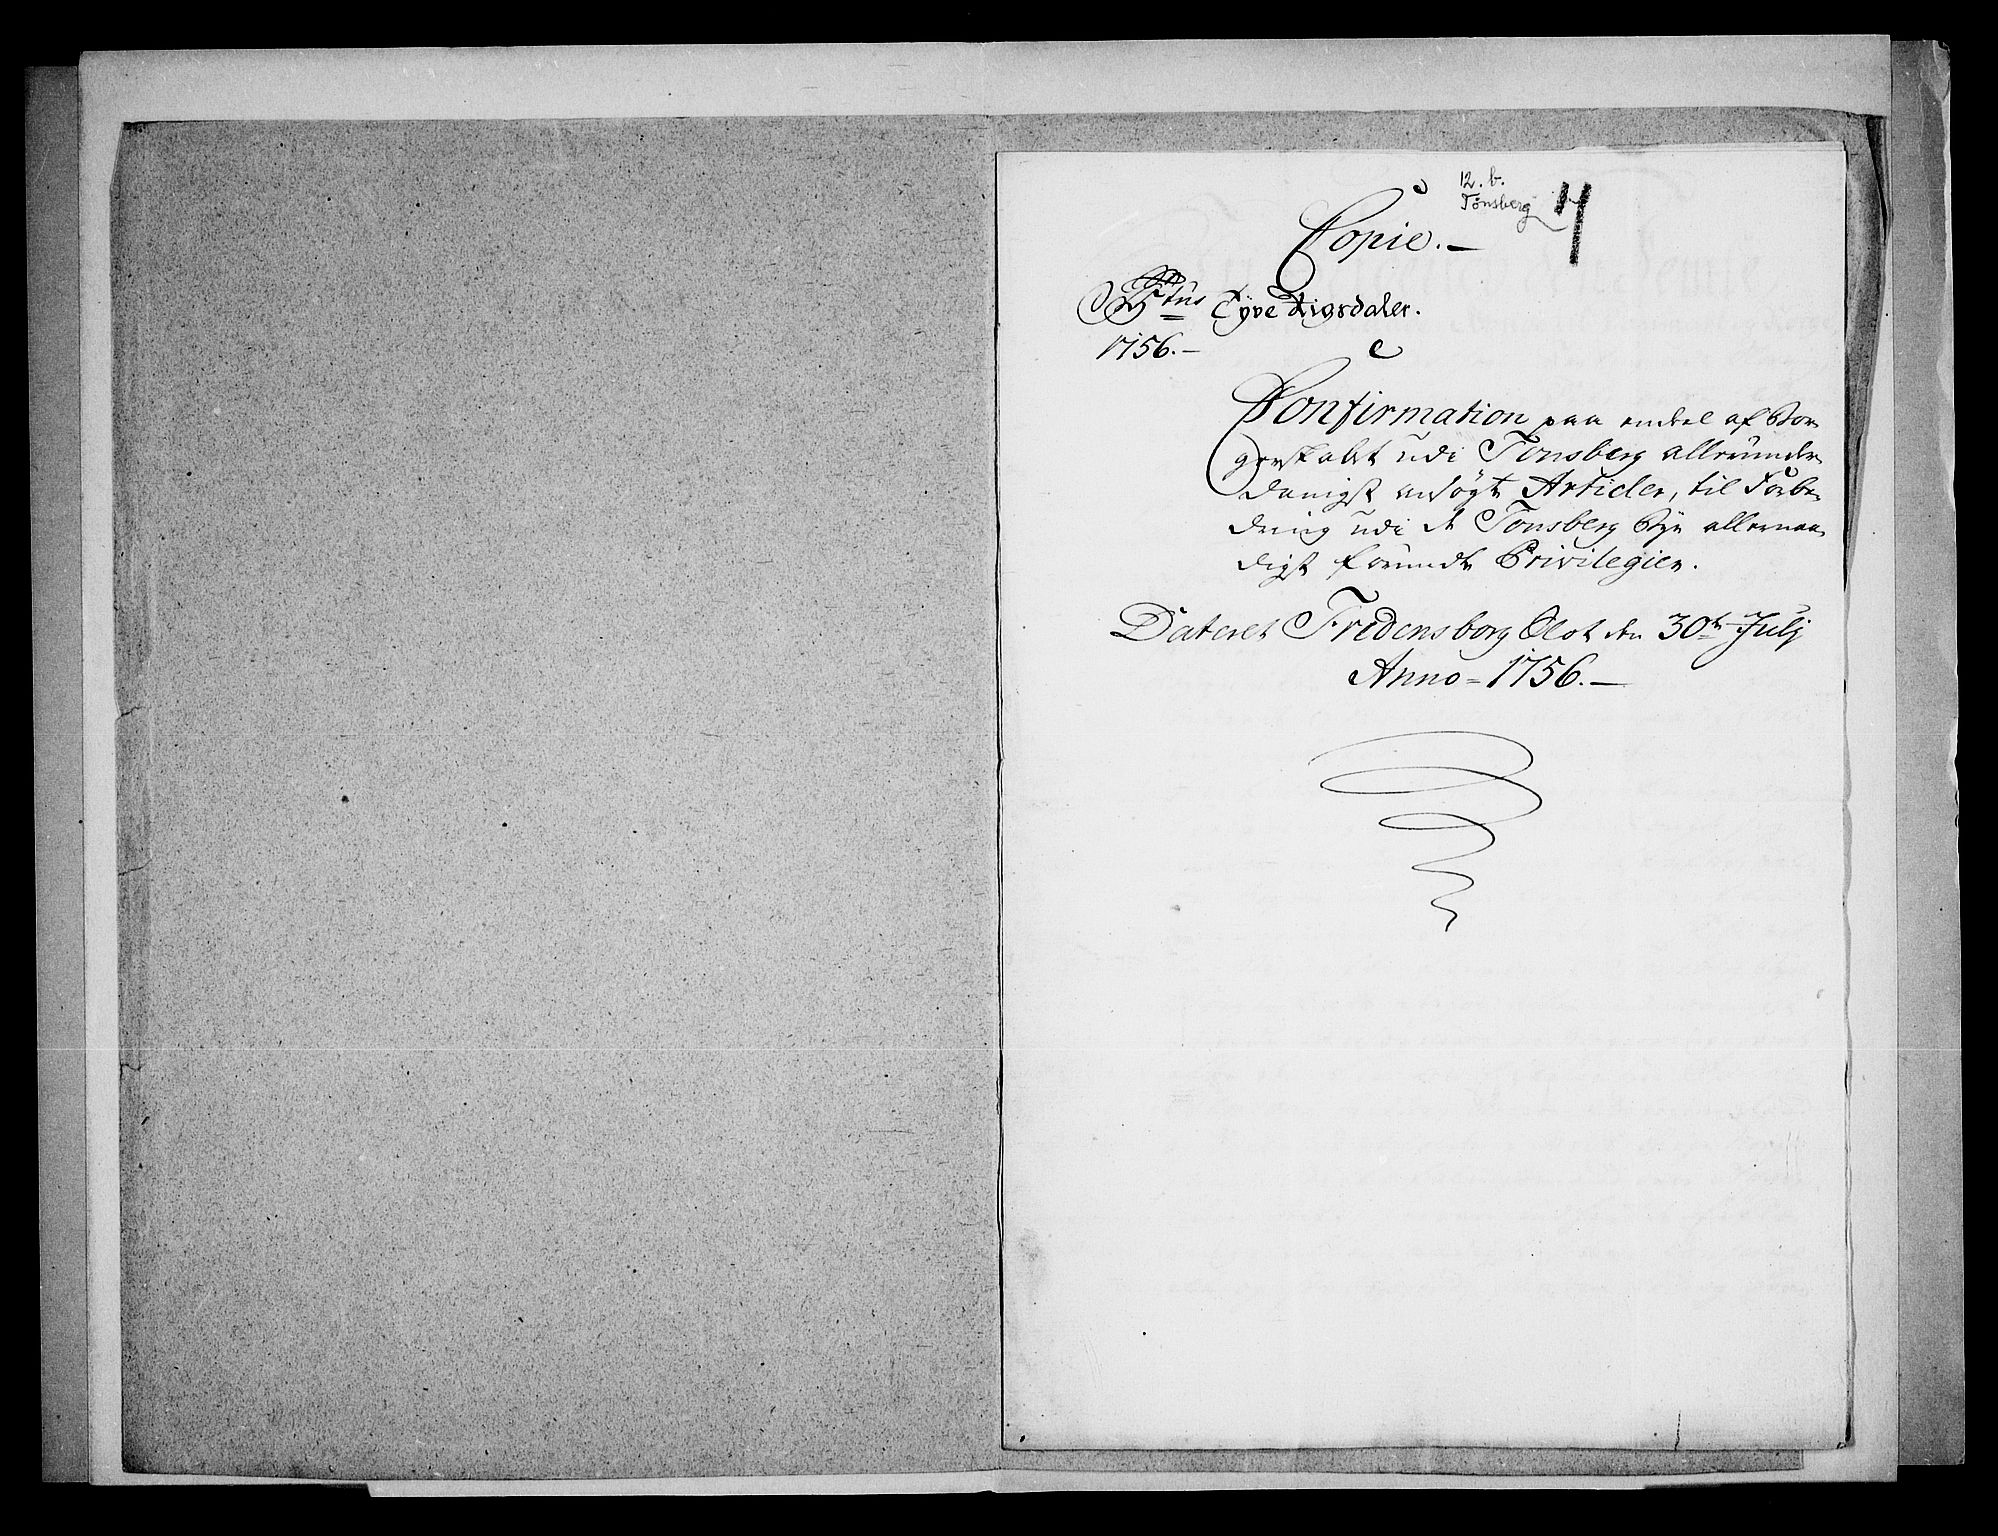 12. b.
Tønsberg
4
Copie.—
Tyve Rigsdaler.
1756.—
Confirmation paa endeel af Bor-
gerskabet udi Tonsberg allerunder-
danigst ansøgte Articler, til Forbe-
dring udi de Tonsberg Bye allernaa-
digst forundte Privilegier.
Dateret Fredensborg Slot den 30te Julj
Anno = 1756.—